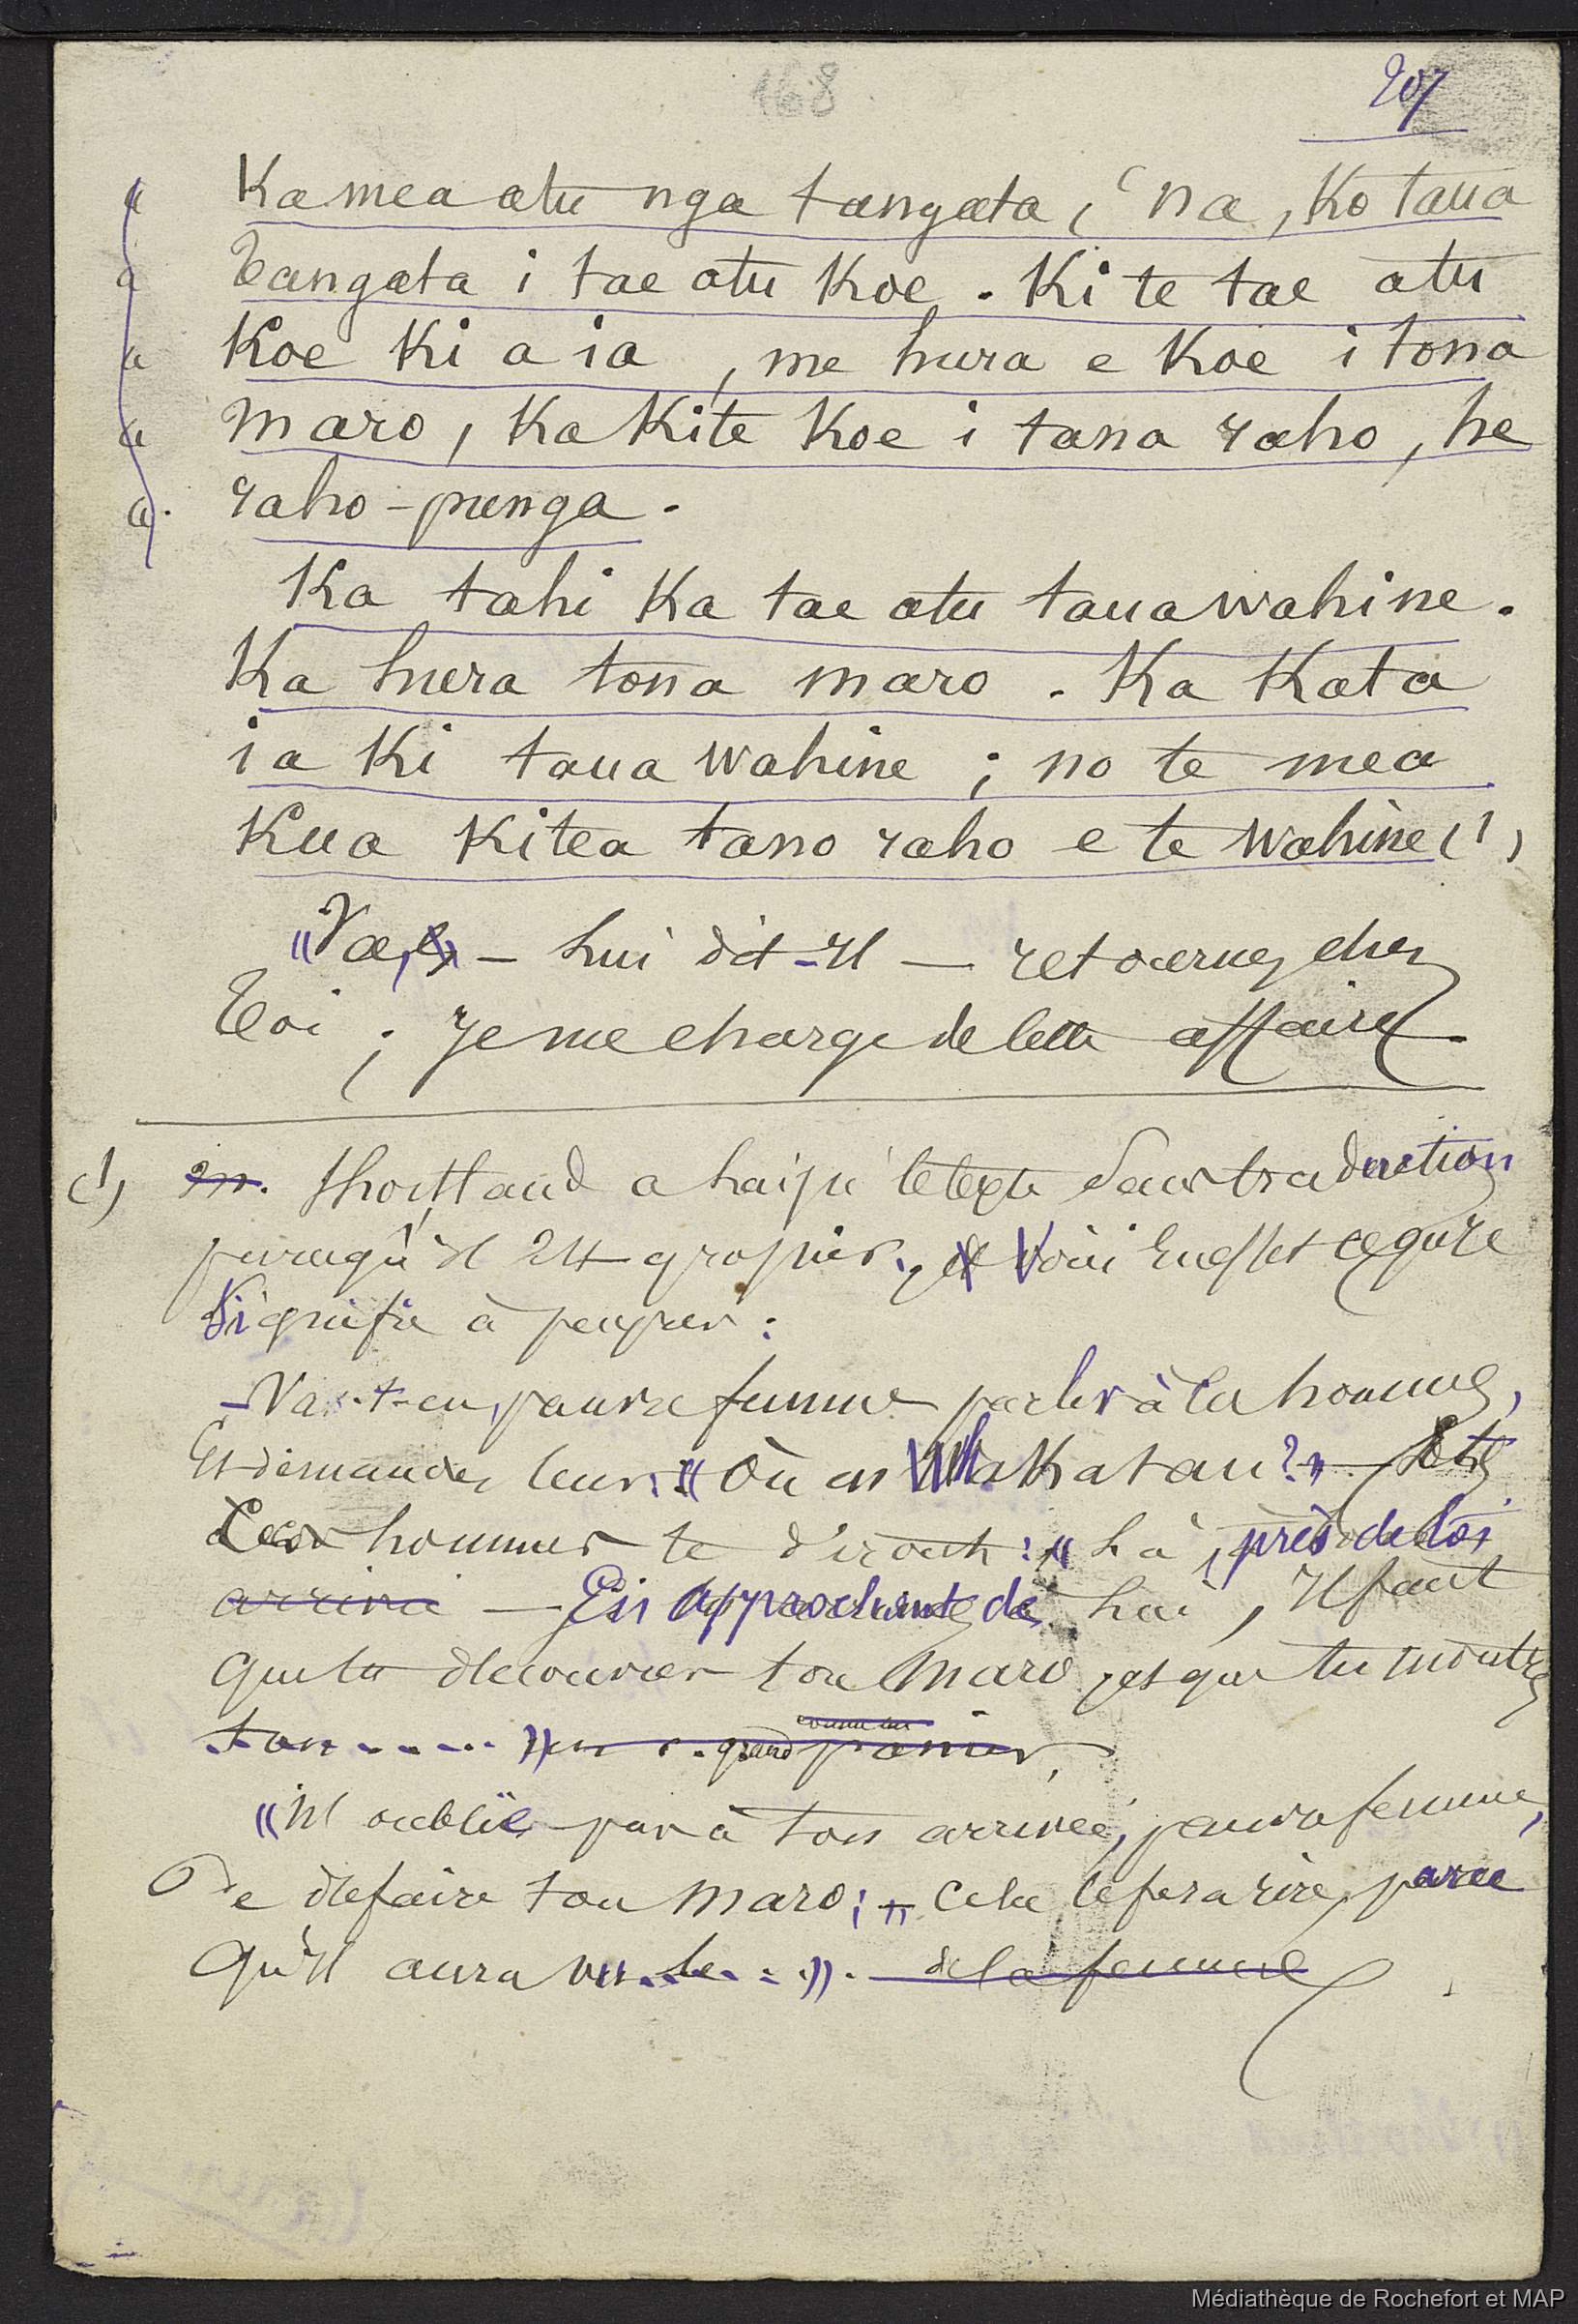 168
207
a Ka mea atu nga tangata, 'na, Ko taua
a Tangata i tae atu Koe. Ki te tae atu
a Koe Ki a ia, me hura e Koe i tona
a maro, Ka Kite Koe i tana raho, he
a. raho-punga.
Ka tahi Ka tae atu taua wahine.
Ka hura tona maro. Ka Kata
ia Ki taua wahine ; no te mea
Kua Kitea tano raho e te wahine (1)
« Va, » — lui dit-il — retourne chez
Toi ; Je me charge de cette affaire.
(1) M. Shortland a laissé le texte sans traduction
parcequ'il est grossier. Voici en effet ce qu'il
signifie à peu près :
- Va-t-en, pauvre femme parler à ces hommes,
Et demandes leur : « Où est Whakatau ? » - Et
Ces hommes te diront : « Là, près de toi
arrivé — En approchant de lui, Il faut
que tu découvres ton maro, et que tu montres
ton ..... » un grand comme un panier,
« N'oublie pas à ton arrivée, pauvre femme,
De défaire ton maro ; Cela le fera rire, parce
qu'il aura vu le .... ». de la femme
Médiathèque de Rochefort et MAP